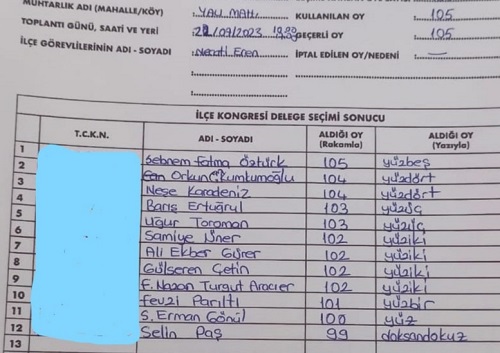 MUHTARLIK ADI (MAHALLE/KÖY) : YALI MAH. KULLANILAN OY : 105
TOPLANTI GÜNÜ, SAATİ VE YERİ : 22/09/2023 GEÇERLİ OY : 105
İLÇE GÖREVLİLERİNİN ADI - SOYADI : Nevati Eren İPTAL EDİLEN OY/NEDENİ : —
İLÇE KONGRESİ DELEGE SEÇİMİ SONUCU
T.C.K.N. ADI - SOYADI ALDIĞI OY (Rakamla) ALDIĞI OY (Yazıyla)
1 Şebnem Fatma Öztürk 105 yüzbeş
2 Can Orkun Çıkumkumoğlu 104 yüzdört
3 Neşe Karadeniz 104 yüzdört
4 Barış Ertuğrul 103 yüzüç
5 Uğur Toroman 103 yüzüç
6 Samiye Üner 102 yüziki
7 Ali Ekber Gürer 102 yüziki
8 Gülseren Çetin 102 yüziki
9 F. Nazan Turgut Aracıer 102 yüziki
10 Fevzi Parıltı 101 yüzbir
11 S. Erman Gönül 100 yüz
12 Selin Paş 99 doksandokuz
13